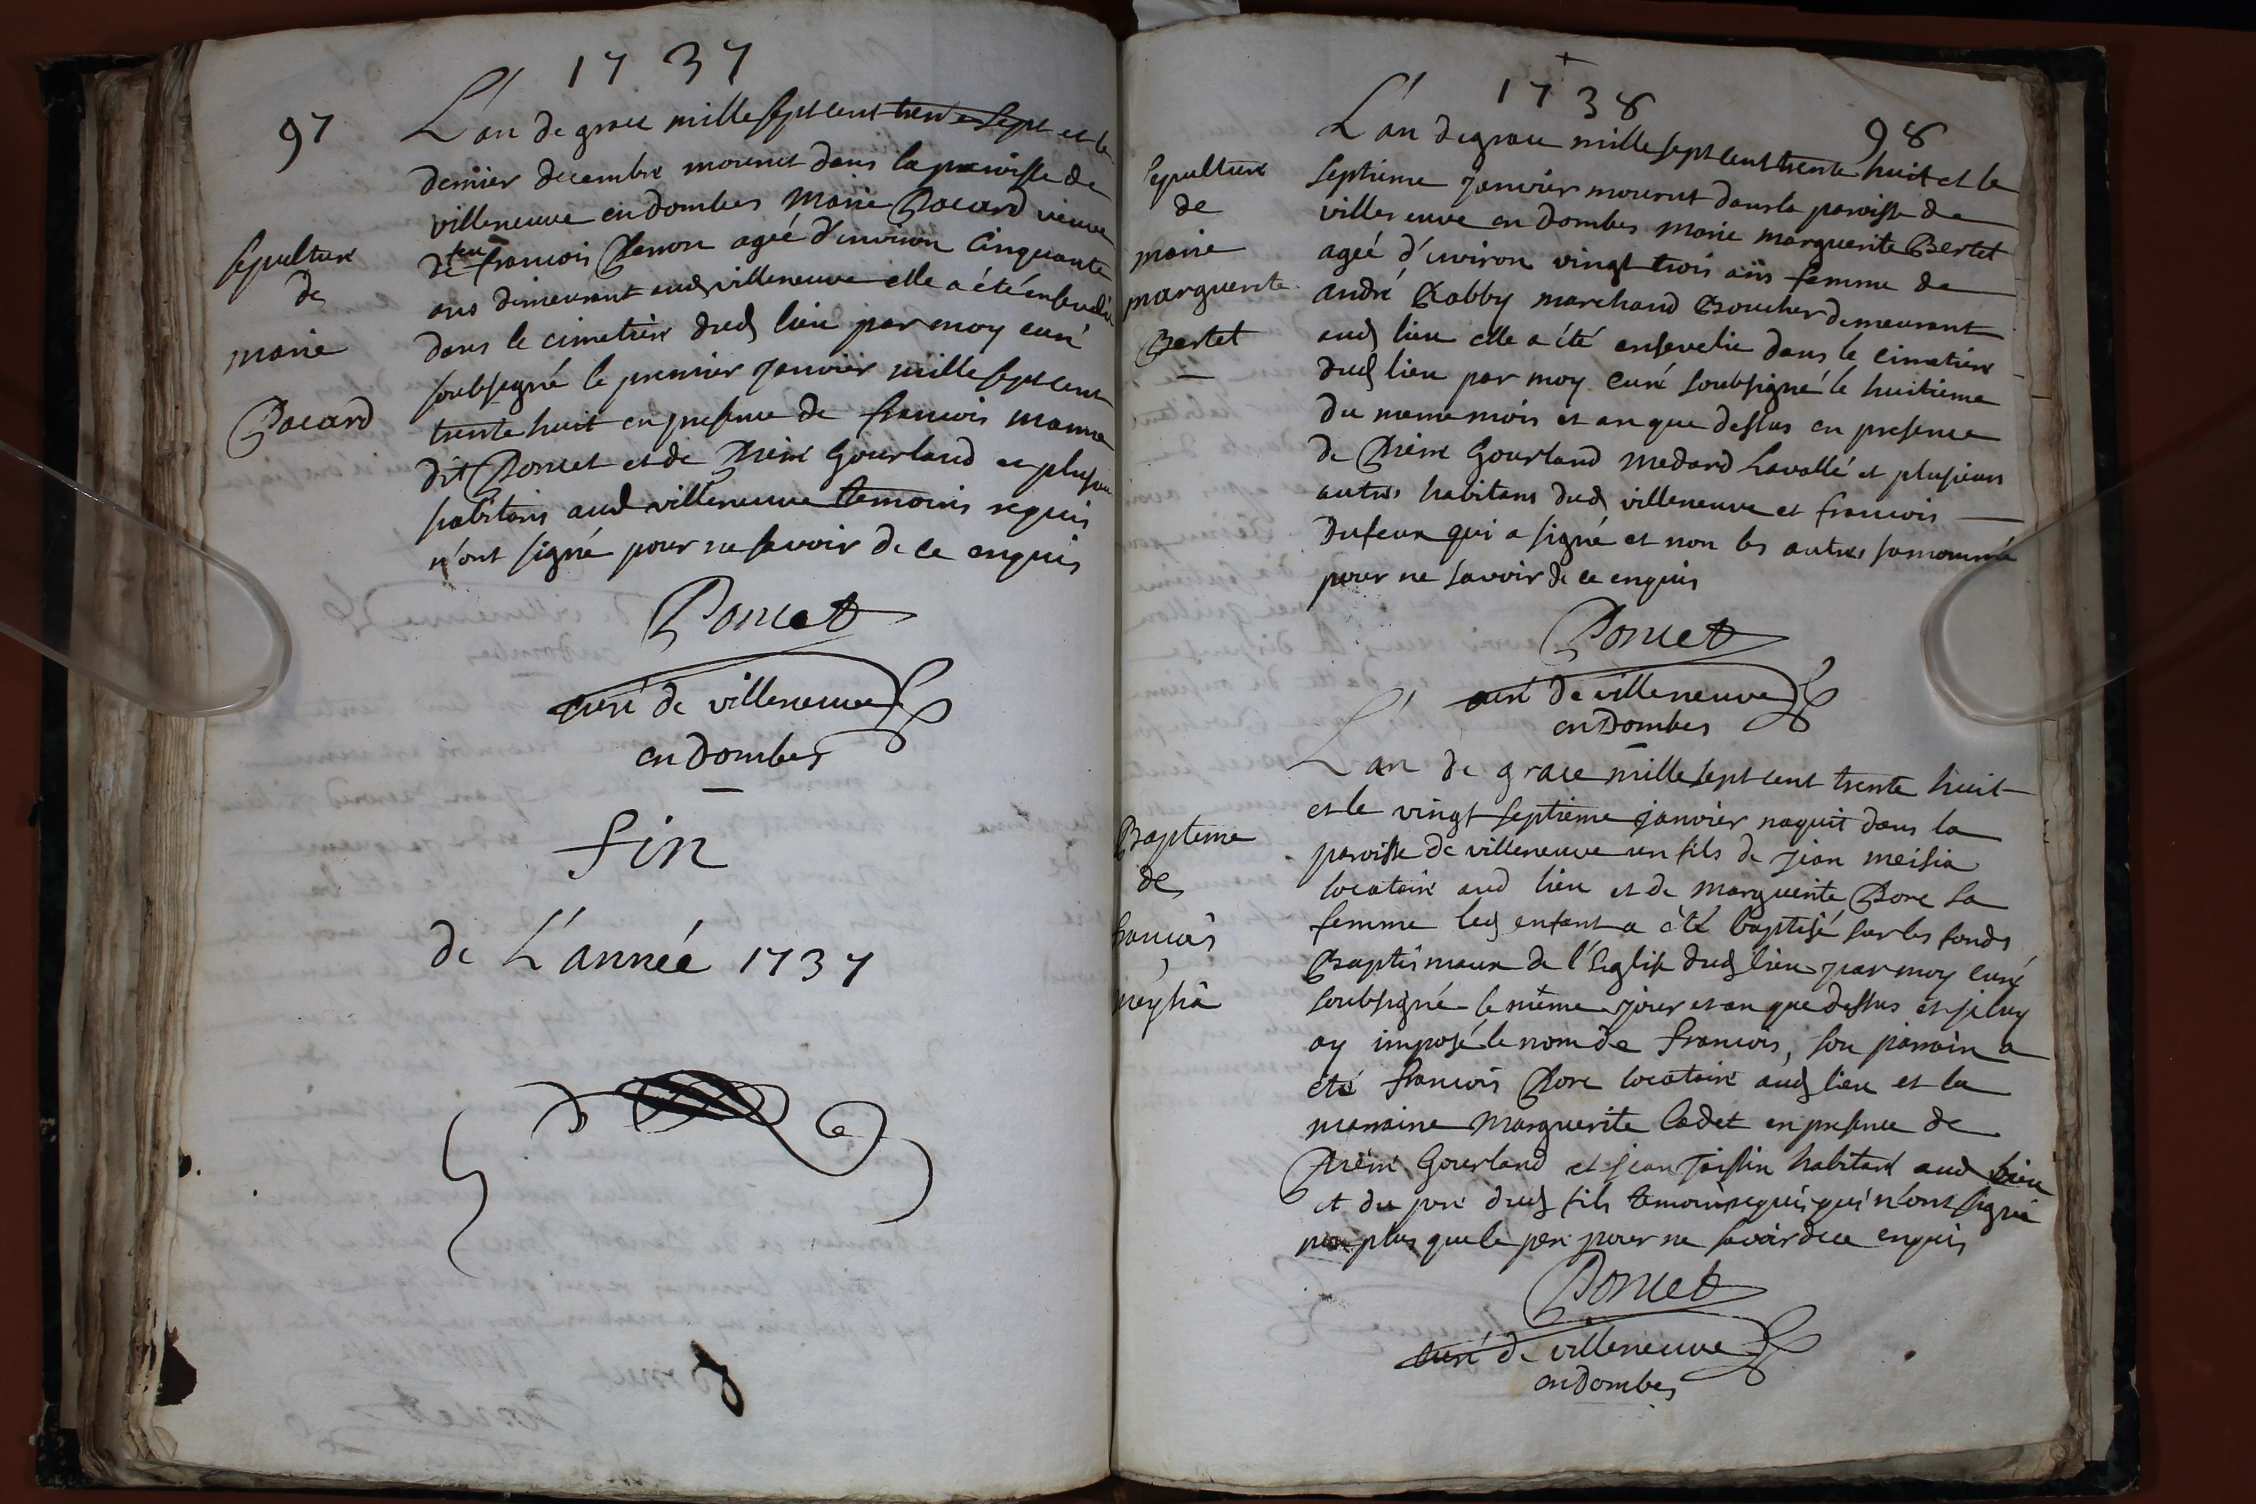 1737
97
L'an de grace mille sept cent trente sept et le
dernier decembre mourut dans la paroisse de
villeneuve en dombes Marie Pacard veuve
de feu francois Perron ageé d'environ Cinquante
ans demeurant aud villeneuve elle a été ensevelie
dans le cimetiere dud lieu par moy curé
soubsigné le premier Janvier mille sept cent
trente huit en presence de francois
dit Poncet et de Pierre Gourland et plusieu
habitans aud villeneuve temoins requis
n'ont signé pour ne savoir de ce enquis
Sepulture
de
marie
Pacard
Poncet
curé de villeneuve
en Dombes
fin
de L'année 1737
1738
98
L'an de grace mille sept cent trente huit et le
septieme Janvier mourut dans la paroisse de
villeneuve en Dombes marie marguerite Bertet
ageé d'environ vingt trois ans femme de
andré Rabby marchand Boucher demeurant
aud lieu elle a été ensevelie dans le cimetiere
dud lieu par moy curé soubsigné le huitieme
du meme mois et an que dessus en presence
de Pierre Gourland Medard Lavallé et plusieurs
autres habitans dud villeneuve et francois
Dufeux qui a signé et non les autres surnommé
pour ne savoir de ce enquis
Sepulture
de
marie
marguerite
Bertet
Poncet
curé de villeneuve
en Dombes
L'an de grace mille sept cent trente huit
et le vingt septieme janvier naquit dans la
paroisse de villeneuve un fils de Jean meisia
locataire aud lieu et de marguerite Pore sa
femme led enfant a été baptisé sur les fonds
Baptismaux de l'Eglise dud lieu par moy curé
soubsigné le même jour et an que dessus et je luy
ay imposé le nom de francois, son parrain a
été francois Pore locataire aud lieu et la
marraine Marguerite Cadet en presence de
Pierre Gourland et Jean habitant aud lieu
et du pere dud fils temoins requis qui n'ont signé
non plus que le pere pour ne savoir de ce enquis
Bapteme
de
francois
meysia
Poncet
curé de villeneuve
en dombes